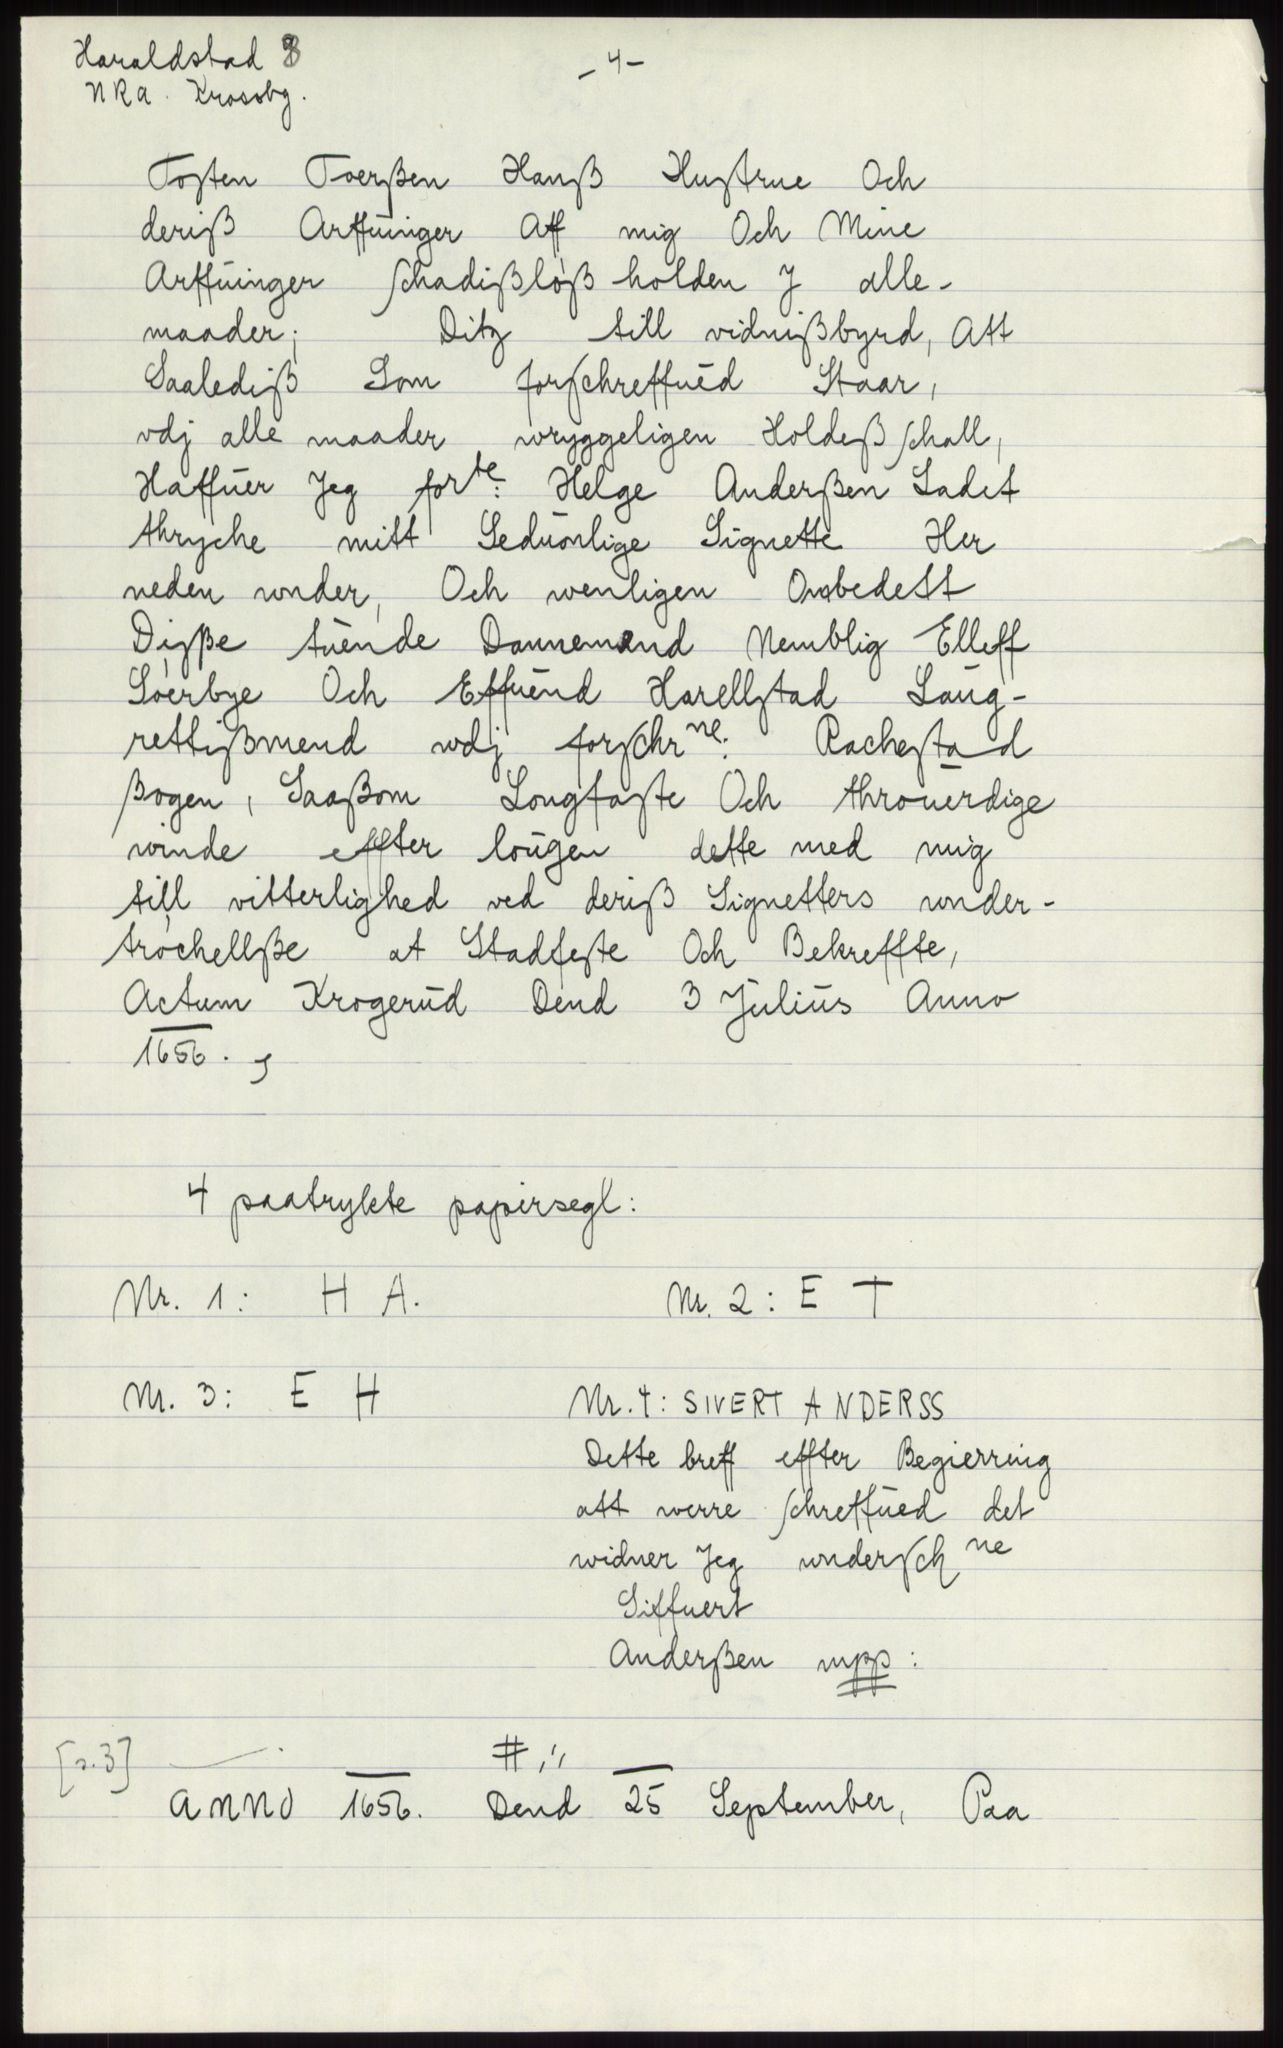 Haraldstad 8
- 4 -
NRA. Krossbg.
Tosten Toerßen Hanß Hustrue Och
deriß Arffuinger Aff mig Och Mine
Arffuinger schadißløß holden J alle-
maader; Ditz till vidnißbyrd, Att
Saalediß Som forschreffued Staar,
vdj alle maader wryggeligen Holdeß schall,
Haffuer Jeg forte: Helge Anderßen Ladet
thryche mitt Seduonlige Signette Her
neden wnder, Och wenligen Ombedett
Disse tuende Dannemend Nemblig Elleff
Soerbye Och Effuend Harellstad Laug-
rettißmend wdj forschrne: Rachestad
ßogen, Saaßom Longfaste Och throuerdige
winde effter lougen dette med mig
till vitterlighed ved deriß Signetters wnder-
trøchellße at Stadfeste Och Bekreffte,
Actum Krogerud Dend 3 Julius Anno
1656.
4 paatrykte papirsegl:
Nr. 1: H A.
Nr. 2: E T
Nr. 3: E H
Nr. 4: SIVERT ANDERSS
Dette breff effter Begierring
att werre schreffued det
widner Jeg wndersch ne
Siffuert
Anderßen mpp:
[s. 3]
# ,',
ANNO 1656. Dend 25 September, Paa